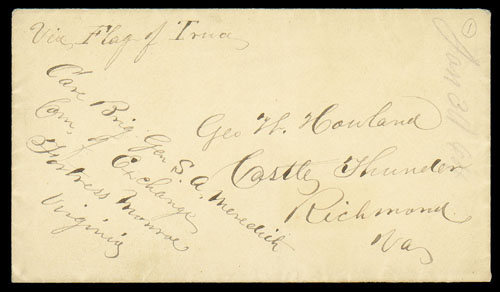 Via Flag of Truce
Care Brig. Gen S. A. Meredith
Com. of Exchange
Fortress Monroe
Virginia
Geo W. Howland
Castle Thunder
Richmond
Va
1
Jan 31